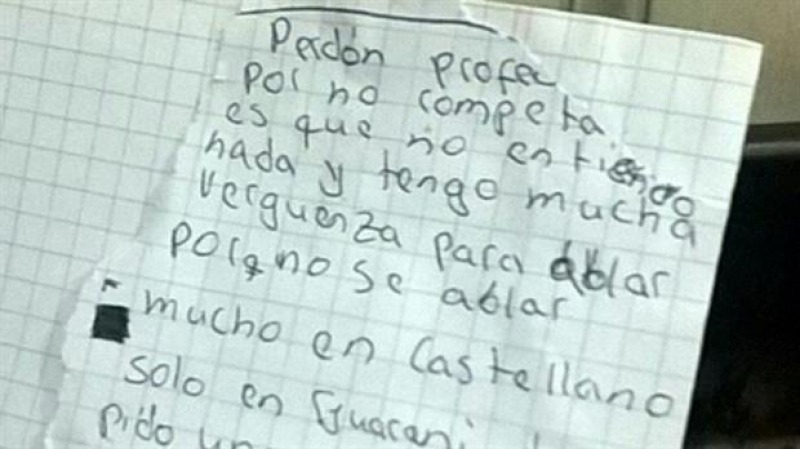 Perdón profe
Por no competa
es que no entiendo
nada y tengo mucha
verguenza para ablar
porq no se ablar
mucho en Castellano
solo en Guarani
pido